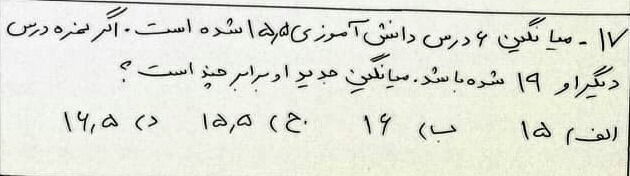 ۱۷ - میانگین ۶ درس دانش آموزی ۱۵٫۵ شده است. اگر نمره درس
دیگر او ۱۹ شده باشد. میانگین جدید او برابر چند است؟
الف) ۱۵ ب) ۱۶ ج) ۱۵٫۵ د) ۱۶٫۵